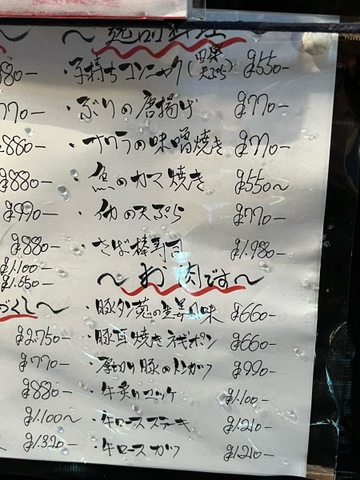 880-
・子持ちコンニャク(田楽 天ぷら) ¥550-
770-
・ぶりの唐揚げ ¥770-
880-
・サワラの味噌焼き ¥770-
¥880-
・魚のカマ焼き ¥550~
¥990-
の天ぷら ¥770-
¥880-
・さば棒寿司 ¥1.980-
¥1.100-
¥1.650-
〜お肉です〜
づくし〜
・豚 の生姜風味 ¥660-
¥2750-
・豚耳焼き ポン ¥660-
¥770-
・厚切り豚の串カツ ¥990-
¥880-
・牛炙りユッケ ¥1.100-
¥1.100~
・牛ロースステーキ ¥1.210-
¥1.320-
・牛ロースカツ ¥1.210-